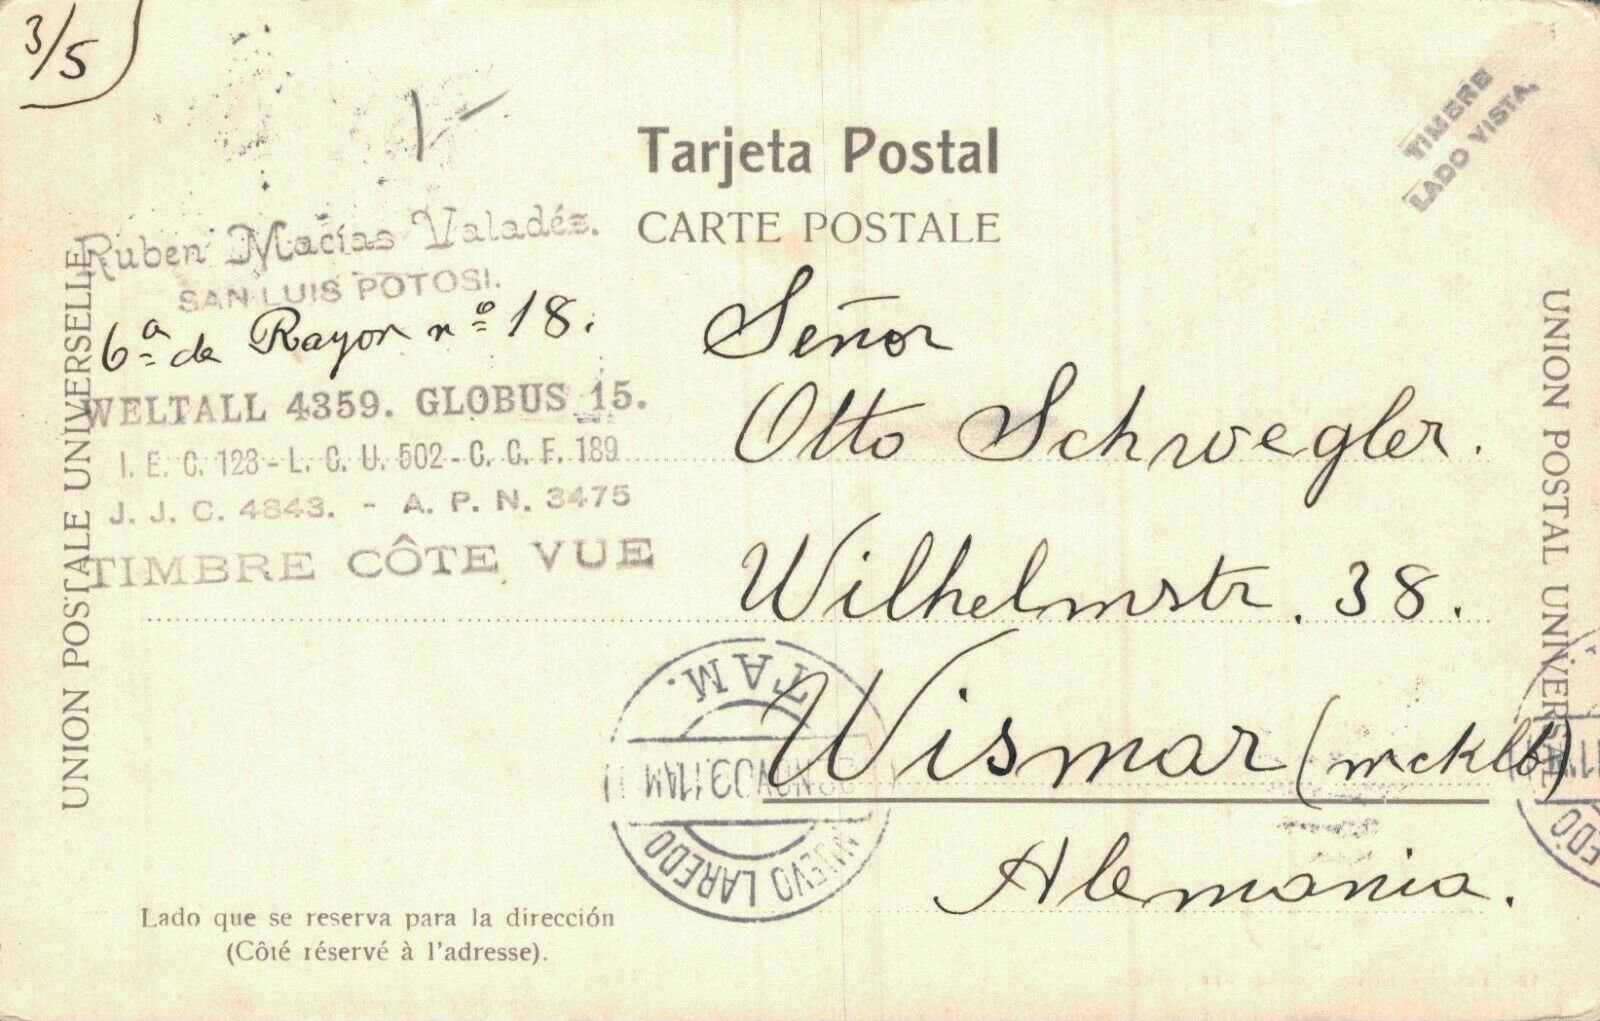 3/5
1-
TIMBRE
LADO VISTA.
Tarjeta Postal
CARTE POSTALE
Ruben Macías Valadéz.
SAN LUIS POTOSI.
6ª de Rayon nº 18.
WELTALL 4359. GLOBUS 15.
I. E. C. 128 - L. C. U. 502 - C. C. F. 189
J. J. C. 4843. - A. P. N. 3475
TIMBRE CÔTE VUE
UNION POSTALE UNIVERSELLE
Señor
Otto Schwegler.
Wilhelmstr. 38.
Wismar (mcklb)
Alemania.
UNION POSTAL UNIVERSAL
NUEVO LAREDO
NOV 09 11 AM
TAM.
Lado que se reserva para la dirección
(Côté réservé à l'adresse).